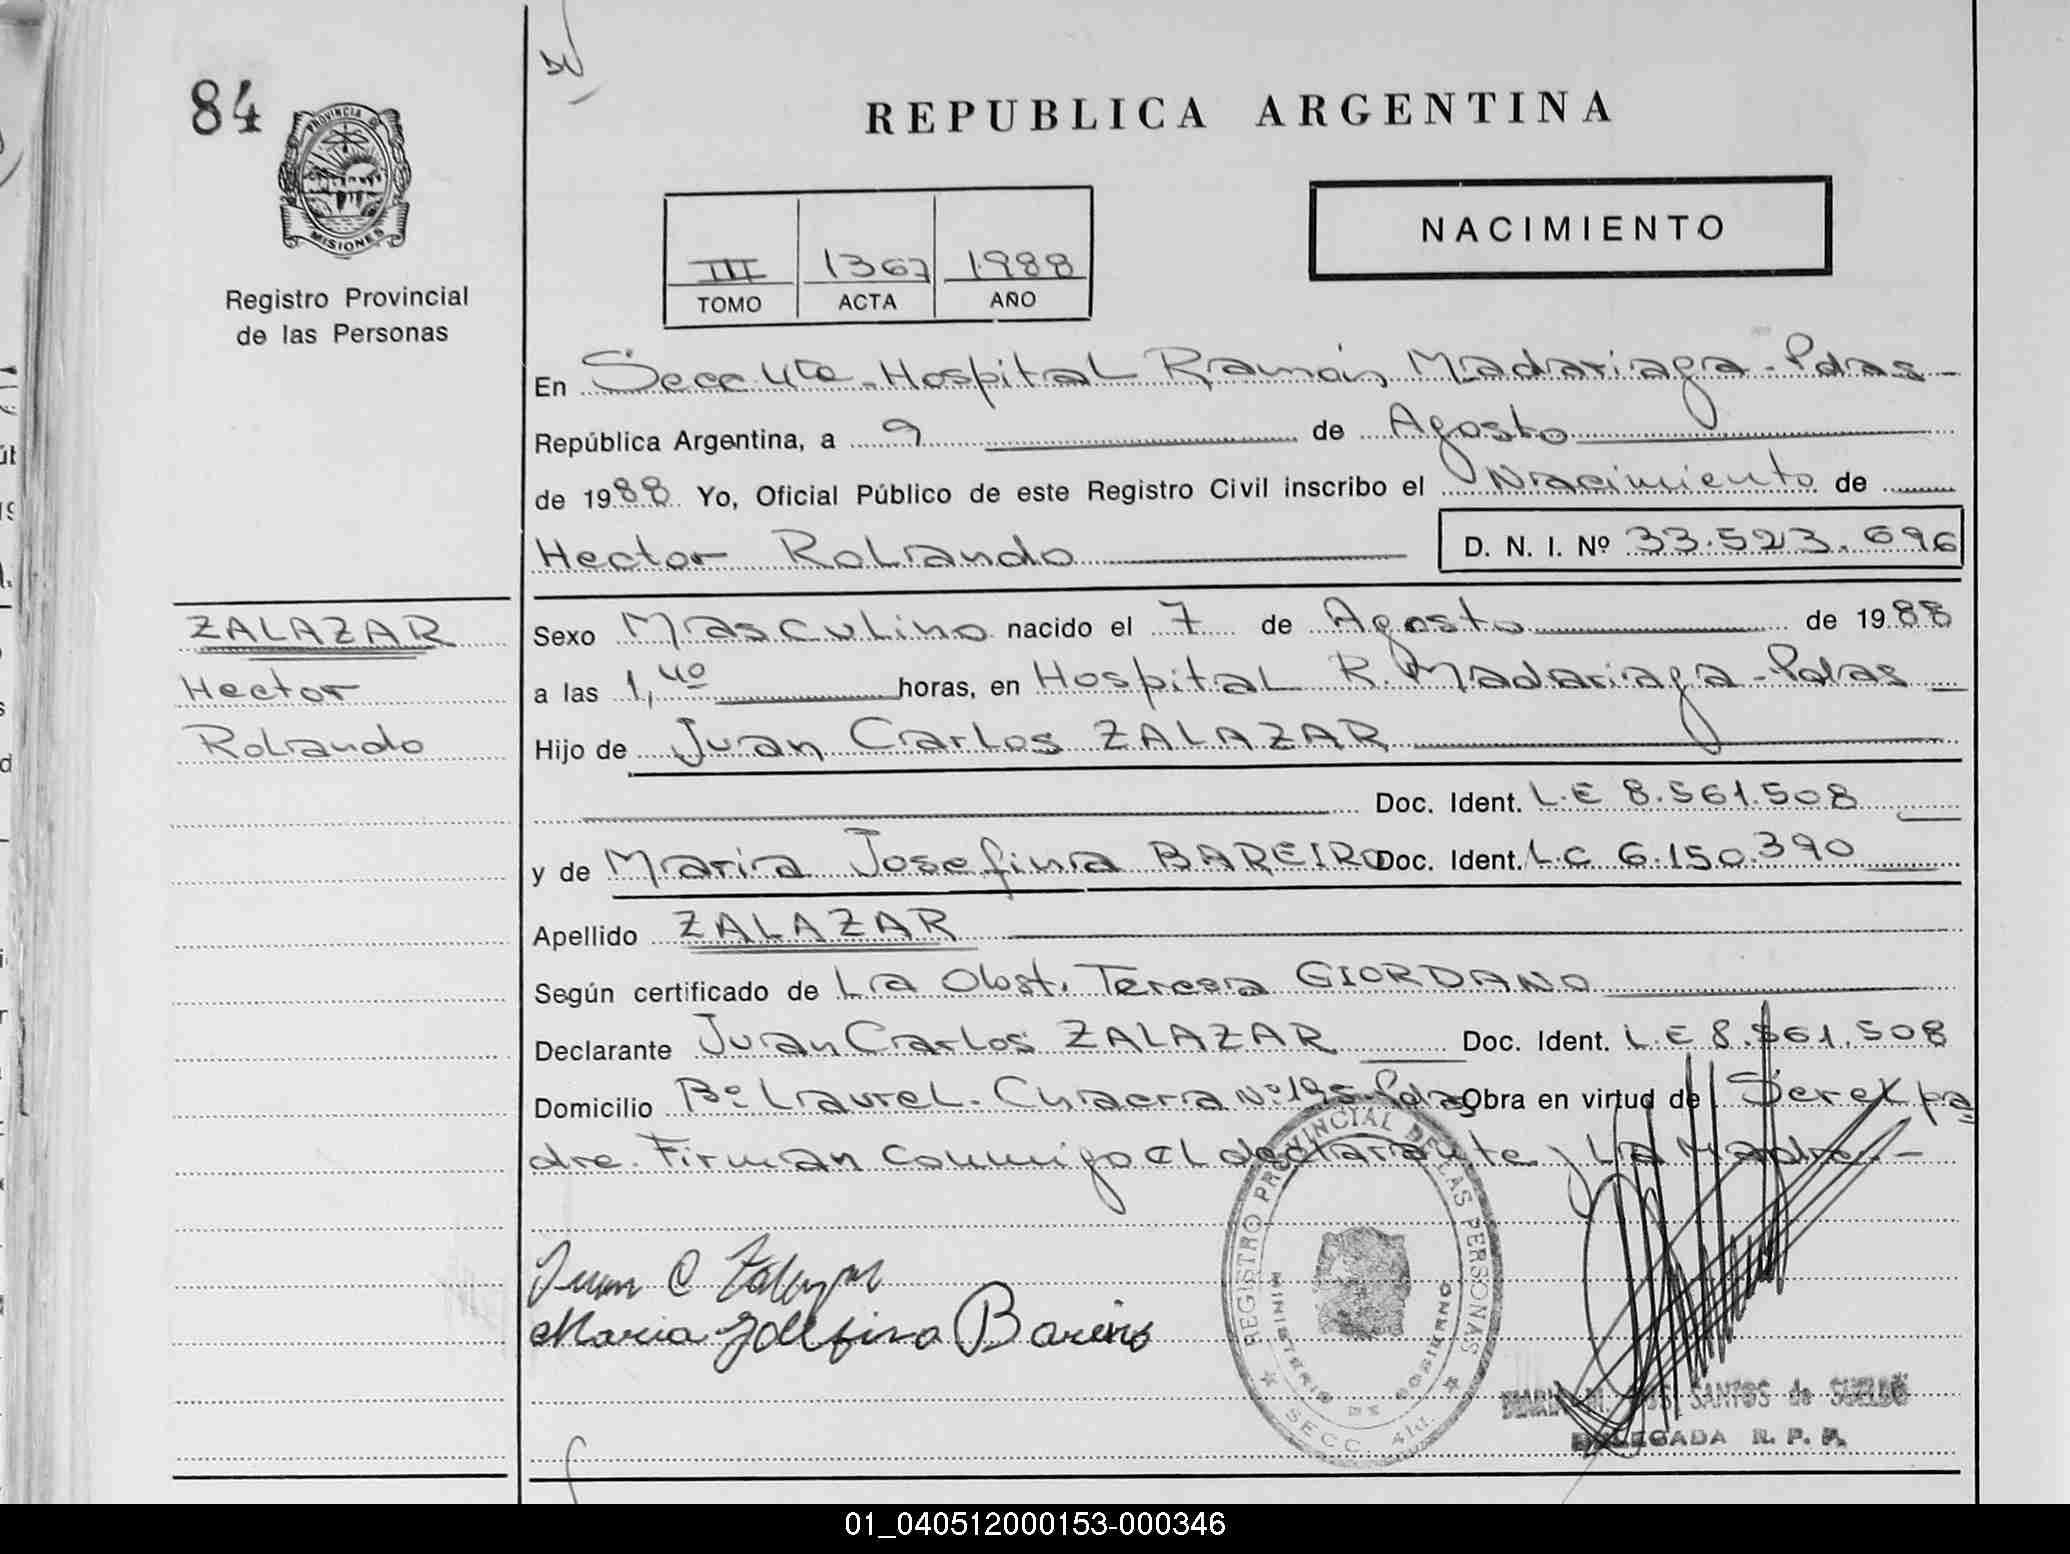 84
PROVINCIA DE
MISIONES
Registro Provincial
de las Personas
REPUBLICA ARGENTINA
NACIMIENTO
III 1367 1988
TOMO ACTA AÑO
En Secc 4ta - Hospital Ramón Madariaga - Pdas -
República Argentina, a 9 de Agosto
de 1988 Yo, Oficial Público de este Registro Civil inscribo el Nacimiento de
Hector Rolando D. N. I. Nº 33.523.696
ZALAZAR
Hector
Rolando
Sexo Masculino nacido el 7 de Agosto de 1988
a las 1,40 horas, en Hospital R. Madariaga - Pdas -
Hijo de Juan Carlos ZALAZAR
Doc. Ident. L.E 8.561.508
y de Maria Josefina BAREIRO Doc. Ident. L.C 6.150.390
Apellido ZALAZAR
Según certificado de La Obst. Teresa GIORDANO
Declarante Juan Carlos ZALAZAR Doc. Ident. L.E 8.561.508
Domicilio Bº Laurel - Chacra Nº 195 - Pdas Obra en virtud de Ser el pa
dre. Firman conmigo el declarante y La Madre. -
Juan C Zalazar
Maria Josefina Bareiro
REGISTRO PROVINCIAL DE LAS PERSONAS
MINISTERIO DE GOBIERNO
SECC. 4ta.
SANTOS de SUELDO
DELEGADA R. P. P.
01_040512000153-000346